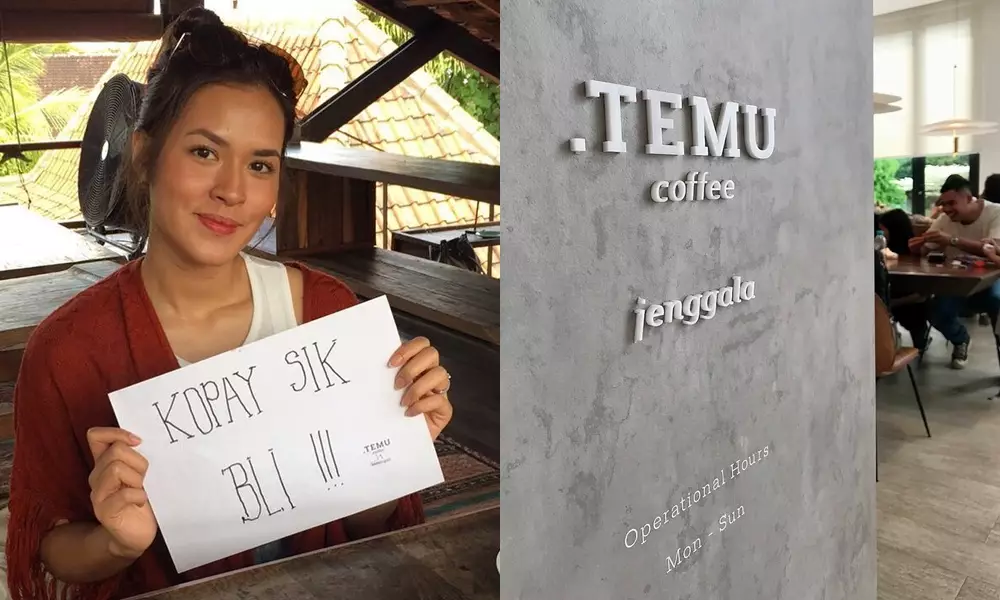 KOPAY SIK
BLI !!!
.TEMU
.TEMU
coffee
jenggala
Operational Hours
Mon - Sun